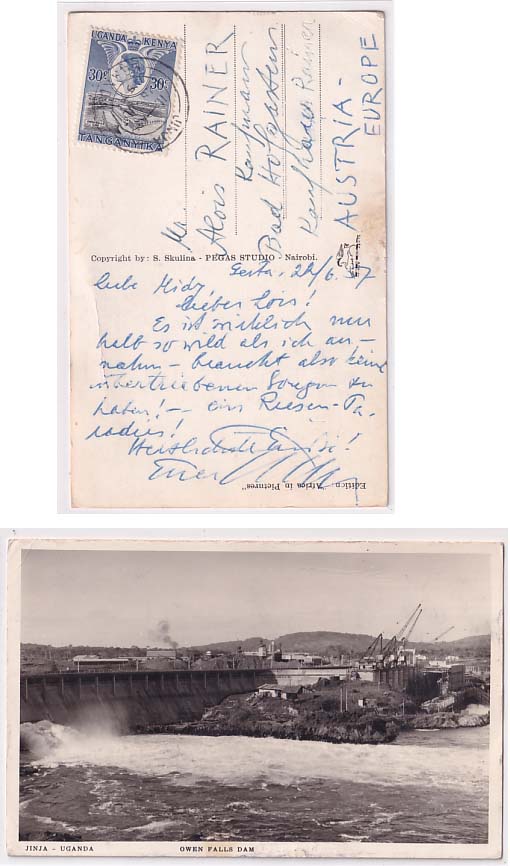 UGANDA KENYA
30c 30c
TANGANYIKA
Alois RAINER
Kaufmann
Bad Hofgastein
Kaufhaus Rainer
AUSTRIA -
EUROPE
Copyright by: S. Skulina - PEGAS STUDIO - Nairobi.
Liebe Midy,
lieber Lois!
Es ist wirklich nur
halb so wild als ich an-
nahm - braucht also keine
übertriebenen Sorgen zu
haben! - ein Riesen-Pa-
radies!
Herzlichste Grüße!
Euer
Edition "Africa in Pictures"
JINJA - UGANDA
OWEN FALLS DAM